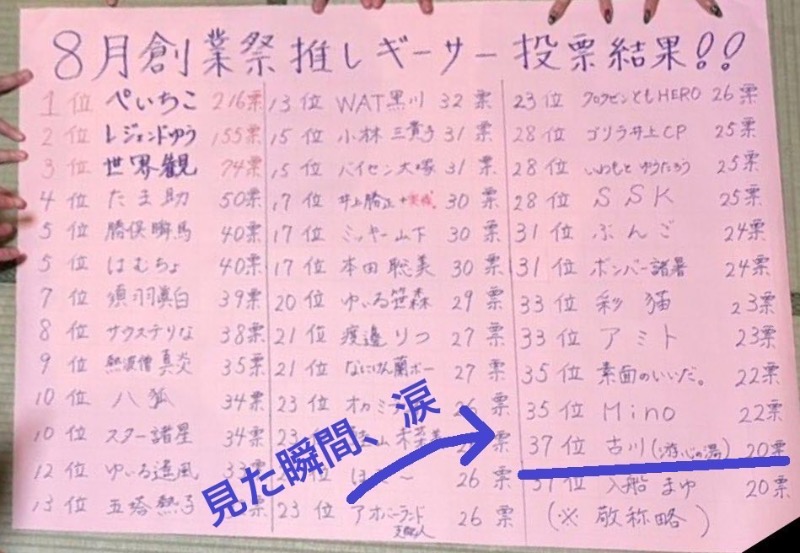 8月創業祭推しギーサー投票結果!!
1位 ぺいちこ 216票
2位 レジェンドゆう 155票
3位 世界観 74票
4位 たま助 50票
5位 勝俣瞬馬 40票
5位 はむちょ 40票
7位 須羽真白 39票
8位 サウステりな 38票
9位 熱波僧 真炎 35票
10位 八狐 34票
10位 スター諸星 34票
12位 ゆいる遥風 33票
13位 五塔熱子
13位 WAT黒川 32票
15位 小林三貴子 31票
15位 バイセン大塚 31票
17位 井上勝正 30票
17位 ミッキー山下 30票
17位 本田聡美 30票
20位 ゆいる笹森 29票
21位 渡邉りつ 27票
21位 なにけん蘭ボー 27票
23位 オカミ 26票
23 票
26票
23位 アホーランド 26票
23位 クロワピンともHERO 26票
28位 ゴリラ井上CP 25票
28位 いわもとゆうたろう 25票
28位 SSK 25票
31位 ぶんご 24票
31位 ボンバー諸暑 24票
33位 彩猫 23票
33位 アミト 23票
35位 素面のいいだ。 22票
35位 Mino 22票
37位 古川(游心の湯) 20票
37位 入船まゆ 20票
(※敬称略)
見た瞬間、涙